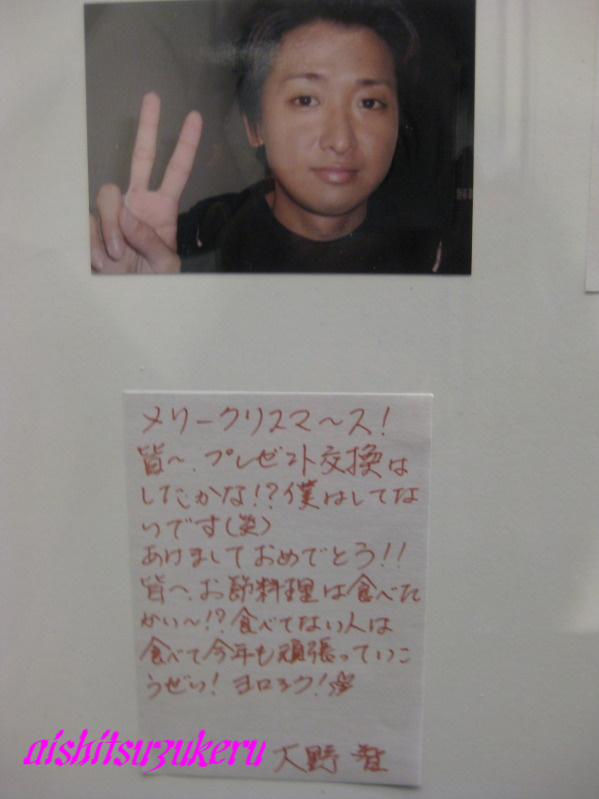 メリークリスマ～ス!
皆～、プレゼント交換は
したかな!?僕はしてな
いです(笑)
あけましておめでとう!!
皆～、お節料理は食べた
かい～!?食べてない人は
食べて今年も頑張っていこ
うぜい!ヨロシク!
aishitsuzukeru
大野智